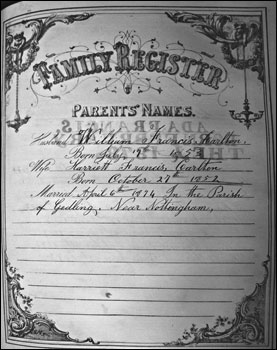 FAMILY REGISTER
PARENTS' NAMES.
Husband William Francis Carlton.
Born July
Wife Harriett Francis Carlton
Born October 27th 1852
Married April 6th 1874 In the Parish
of Gedling, Near Nottingham,